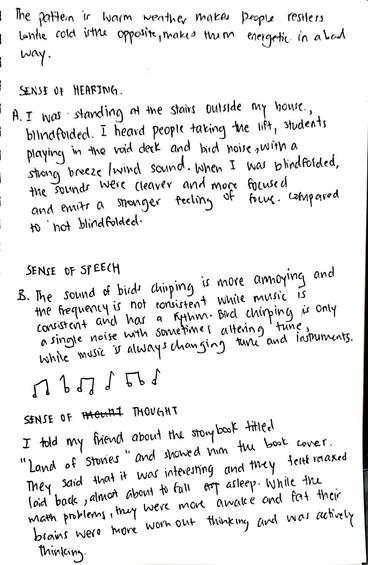 The pattern is warm weather makes people restless
while cold is the opposite, makes them energetic in a bad
way.
SENSE OF HEARING.
A. I was standing at the stairs outside my house,
blindfolded. I heard people taking the lift, students
playing in the void deck and bird noise, with a
strong breeze/wind sound. When I was blindfolded,
the sounds were clearer and more focused
and emits a stronger feeling of focus. compared
to not blindfolded.
SENSE OF SPEECH
B. The sound of birds chirping is more annoying and
the frequency is not consistent while music is
consistent and has a rythm. Bird chirping is only
a single noise with sometimes altering tune,
while music is always changing tune and instruments.
SENSE OF THOUGHT
I told my friend about the storybook titled
"Land of Stories" and showed him the book cover.
They said that it was interesting and they felt relaxed
laid back, almost about to fall asleep. While the
math problems, they were more awake and felt their
brains were more worn out thinking and was actively
thinking.